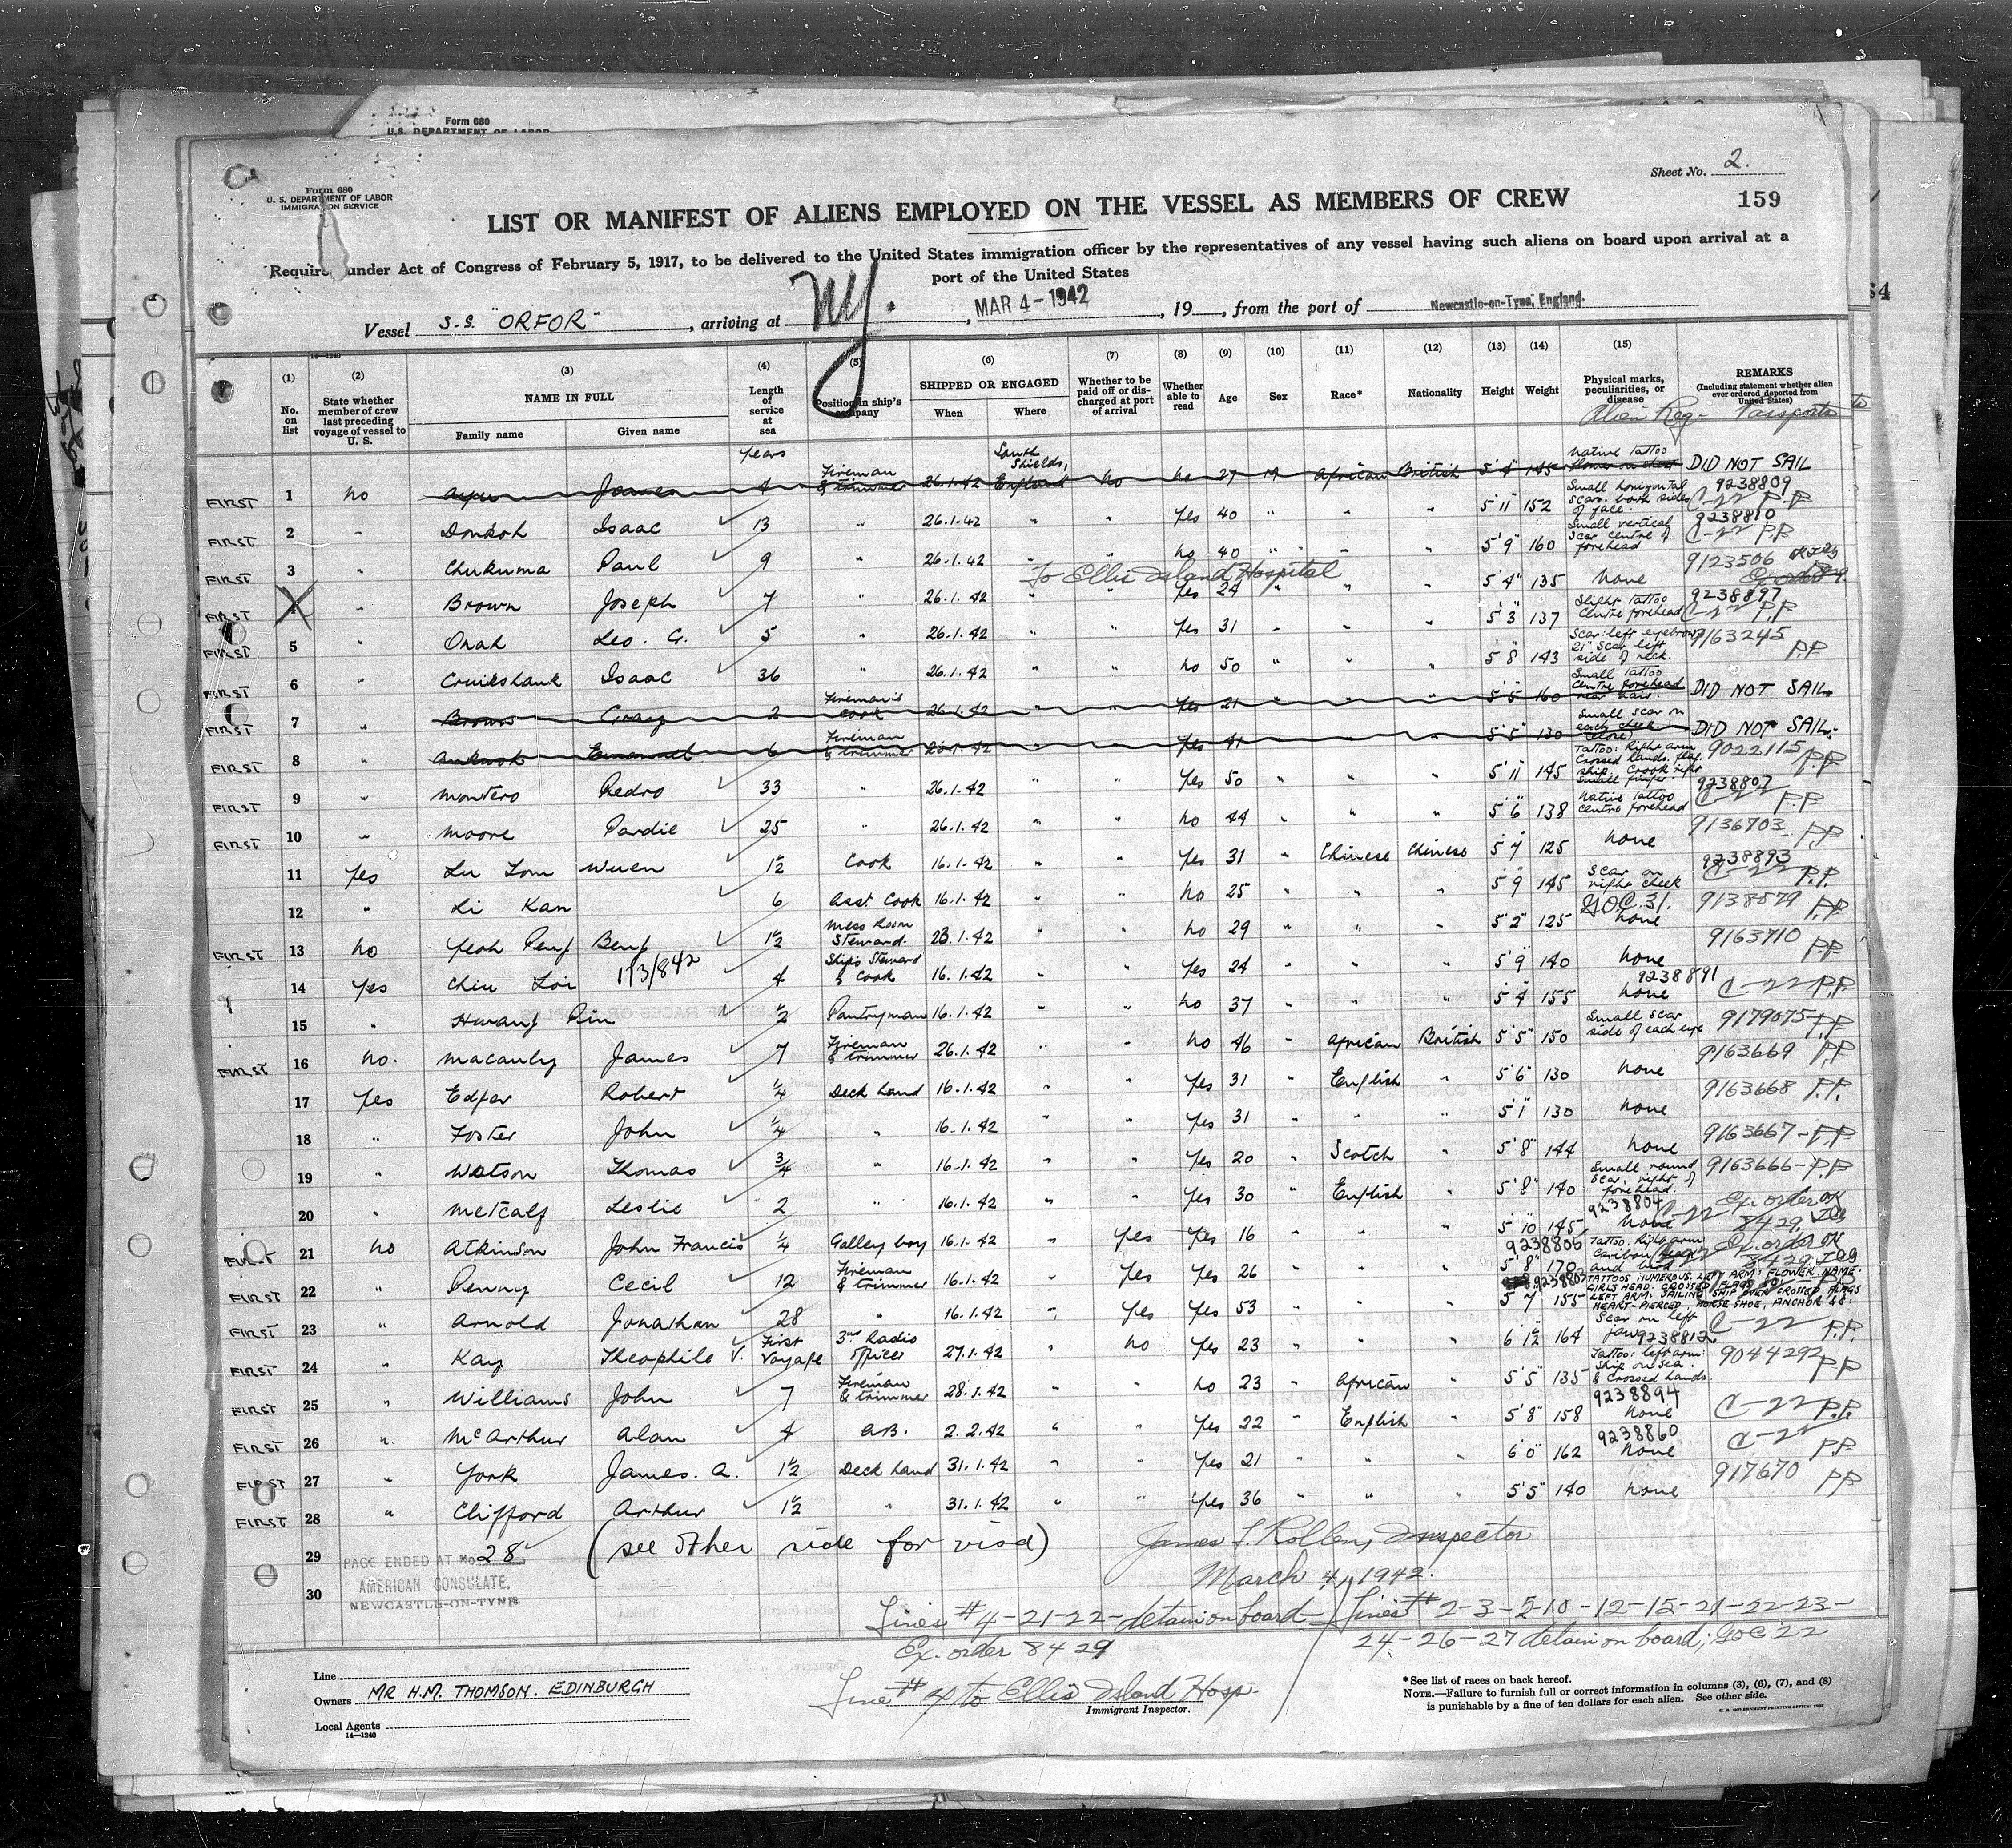 Form 680
U. S. DEPARTMENT OF LABOR
Form 680
U. S. DEPARTMENT OF LABOR
IMMIGRATION SERVICE
Sheet No. 2.
159
LIST OR MANIFEST OF ALIENS EMPLOYED ON THE VESSEL AS MEMBERS OF CREW
Required under Act of Congress of February 5, 1917, to be delivered to the United States immigration officer by the representatives of any vessel having such aliens on board upon arrival at a
port of the United States
Vessel S.S. "ORFOR", arriving at NY., MAR 4-1942, 19, from the port of Newcastle-on-Tyne, England.
14-1240
(1) No. on list (2) State whether member of crew last preceding voyage of vessel to U. S. (3) NAME IN FULL Family name Given name (4) Length of service at sea (5) Position in ship's company (6) SHIPPED OR ENGAGED When Where (7) Whether to be paid off or discharged at port of arrival (8) Whether able to read (9) Age (10) Sex (11) Race* (12) Nationality (13) Height (14) Weight (15) Physical marks, peculiarities, or disease REMARKS (Including statement whether alien ever ordered deported from United States)
Alien Reg- Passports
Years
FIRST 1 no James 4 Fireman & trimmer 26.1.42 South Shields, England no no 27 M African British 5'4" 145 Native Tattoo DID NOT SAIL
FIRST 2 " Donkoh Isaac 13 " 26.1.42 " " Yes 40 " " " 5'11" 152 Small horizontal scars both sides of face. 9238809 C-22 P.P
FIRST 3 " Chukuma Paul 9 " 26.1.42 " " no 40 " " " 5'9" 160 Small vertical scar centre of forehead 9238810 C-22 P.P
To Ellis Island Hospital
FIRST 4 " Brown Joseph 7 " 26.1.42 " " Yes 24 " " " 5'4" 135 None 9123506
FIRST 5 " Onah Leo. G. 5 " 26.1.42 " " Yes 31 " " " 5'3" 137 Slight tattoo centre forehead 9238897 C-22 P.P
FIRST 6 " Cruikshank Isaac 36 " 26.1.42 " " no 50 " " " 5'8" 143 Scar left eyebrow 2" scar left side of neck. 9163245 P.P.
FIRST 7 " Brown Gray 2 Fireman's cook 26.1.42 " " Yes 21 " " " 5'5" 160 Small Tattoo centre forehead near hair DID NOT SAIL.
FIRST 8 " Emanuel 6 Fireman & trimmer 26.1.42 Yes 41 " " " 5'5" 130 Small scar on each cheek DID NOT SAIL.
FIRST 9 " Montero Pedro 33 " 26.1.42 " " Yes 50 " " " 5'11" 145 Tattoo: Right arm Crossed hands. flag. ship. Crook right small finger. 9022115 P.P
FIRST 10 " Moore Pardie 25 " 26.1.42 " " no 44 " " " 5'6" 138 Native Tattoo centre forehead 9238807 C-22 P.P.
11 Yes Lu Tom Wuen 1½ Cook 16.1.42 " " Yes 31 " Chinese Chinese 5'7" 125 None 9136703 P.P
12 " Li Kan 6 Asst. Cook 16.1.42 " " no 25 " " " 5'9" 145 Scar on right cheek 9238893 C-22 P.P.
FIRST 13 no Yeoh Peng Beng 1½ Mess Room Steward. 23.1.42 " " no 29 " " " 5'2" 125 None 9138579 P.P.
14 Yes Chiu Loi 4 Ships Steward & Cook 16.1.42 " " Yes 24 " " " 5'9" 140 None 9163710 P.P
15 " Hwang Pin ½ Pantryman 16.1.42 " " no 37 " " " 5'4" 155 None 9238891 C-22 P.P.
FIRST 16 no. Macauly James 7 Fireman & trimmer 26.1.42 " " no 46 " African British 5'5" 150 Small scar side of each eye 9179075 P.P
17 Yes Edger Robert ¼ Deck hand 16.1.42 " " Yes 31 " English " 5'6" 130 None 9163669 P.P
18 " Foster John ¼ " 16.1.42 " " Yes 31 " " " 5'1" 130 None 9163668 P.P.
19 " Watson Thomas ¾ " 16.1.42 " " Yes 20 " Scotch " 5'8" 144 None 9163667-P.P
20 " Metcalf Leslie 2 " 16.1.42 " " Yes 30 " English " 5'8" 140 Small round scar. right of forehead. 9163666-P.P
FIRST 21 no Atkinson John Francis ¼ Galley boy 16.1.42 " Yes Yes 16 " " " 5'10" 145 None 9238804 C-22 Ex. order OK 8429
FIRST 22 " Penny Cecil 12 Fireman & trimmer 16.1.42 " Yes Yes 26 " " " 5'8" 170 Tattoo. Right arm Caribou and bird 9238806 Ex. order OK 8429
FIRST 23 " Arnold Jonathan 28 " 16.1.42 " Yes Yes 53 " " " 5'7" 155 TATTOOS NUMEROUS. LEFT ARM: FLOWER. NAME. GIRLS HEAD. CROSSED FLAGS LEFT ARM: SAILING SHIP OVER CROSSED FLAGS HEART-PIERCED, HORSE SHOE, ANCHOR
FIRST 24 " Kay Theophile V. First Voyage 3rd Radio officer 27.1.42 " no Yes 23 " " " 6'1½ 164 Scar on left jaw 9238812 C-22 P.P.
FIRST 25 " Williams John 7 Fireman & trimmer 28.1.42 " " no 23 " African " 5'5" 135 Tattoo: left arm: Ship on sea. & Crossed hands 9044292 P.P
FIRST 26 " McArthur Alan 4 A.B. 2.2.42 " " Yes 22 " English " 5'8" 158 None 9238894 C-22 P.P.
FIRST 27 " York James. A. 1½ Deck hand 31.1.42 " " Yes 21 " " " 6'0" 162 None 9238860 C-22 P.P.
FIRST 28 " Clifford Arthur 1½ " 31.1.42 " " Yes 36 " " " 5'5" 140 None 917670 P.P
29 PAGE ENDED AT No 28 (see other side for visa) James L. Rollen, Inspector
AMERICAN CONSULATE,
NEWCASTLE-ON-TYNE
30 March 4, 1942.
Lines #4-21-22-detain on board- Lines # 2-3-5-10-12-15-21-22-23-
Ex. order 8429 24-26-27 detain on board;
Line # 4 to Ellis Island Hosp.
Immigrant Inspector.
Line
Owners MR H.M. THOMSON. EDINBURGH
Local Agents
14-1240
*See list of races on back hereof.
NOTE.—Failure to furnish full or correct information in columns (3), (6), (7), and (8)
is punishable by a fine of ten dollars for each alien. See other side.